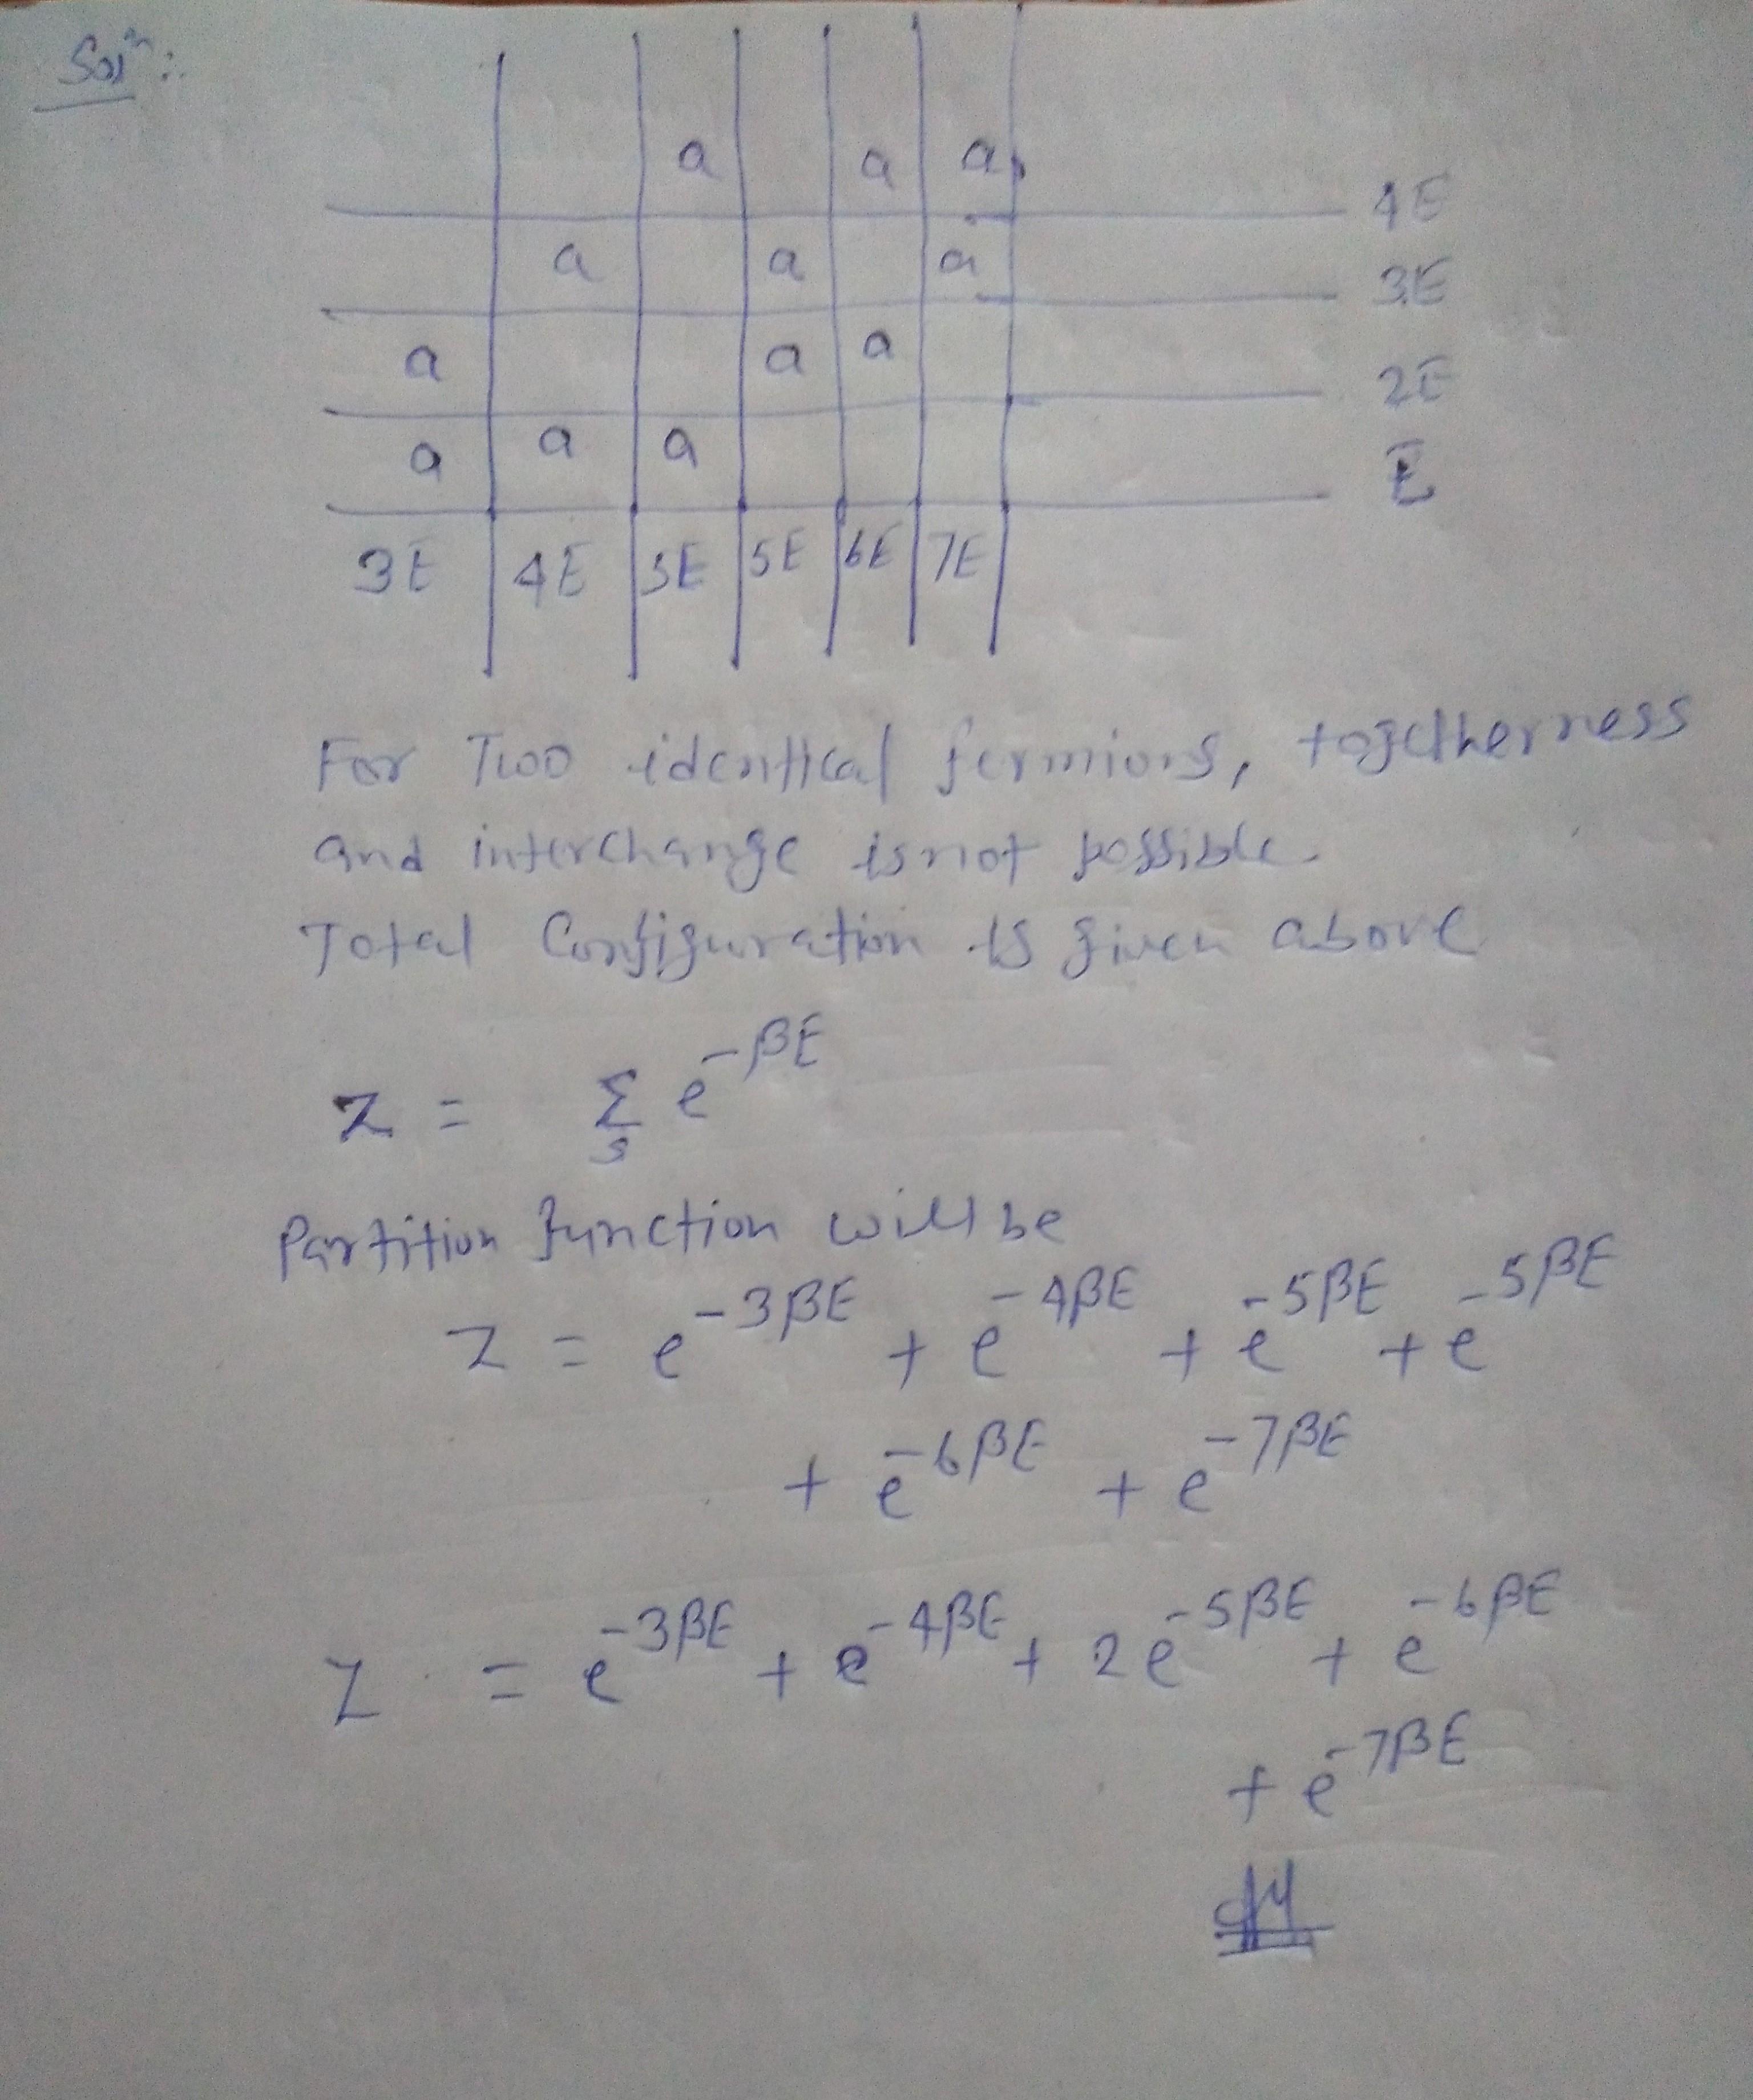 Solⁿ:
a a a 4E
a a a 3E
a a a 2E
a a a E
3E 4E 5E 5E 6E 7E
For Two identical fermions, togetherness
and interchange is not possible.
Total Configuration is given above
Z = Σₛ e^{-βE}
Partition function will be
Z = e^{-3βE} + e^{-4βE} + e^{-5βE} + e^{-5βE}
+ e^{-6βE} + e^{-7βE}
Z = e^{-3βE} + e^{-4βE} + 2e^{-5βE} + e^{-6βE}
+ e^{-7βE}